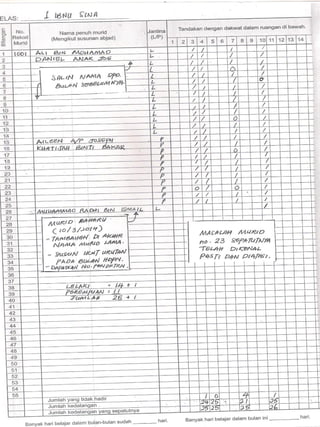 ELAS: 1 IBNU SINA
Bilangan
No. Rekod Murid
Nama penuh murid
(Mengikut susunan abjad)
Jantina (L/P)
Tandakan dengan dakwat dalam ruangan di bawah.
1 2 3 4 5 6 7 8 9 10 11 12 13 14
1 1001 ALI BIN MOHAMAD L
2 DANIEL ANAK JOE L
SALIN NAMA DPD.
BULAN SEBELUMNYA
15 AILEEN A/P JOSEPH P
16 KHATIJAH BINTI BAHAR P
26 MUHAMMAD RADHI BIN ISMAIL L
MURID BAHARU
(10/3/2014)
- TAMBAHKAN DI AKHIR
NAMA MURID LAMA.
- SUSUN IKUT URUTAN
PADA BULAN
- DAPATKAN NO. PENDAFTARAN
MACALAH MURID
NO. 23 SEPATUTNYA
TELAH DIKENAL
PASTI DAN DIATASI.
LELAKI = 14 + 1
PEREMPUAN = 11
JUMLAH 25 + 1
Jumlah yang tidak hadir
Jumlah kedatangan
Jumlah kedatangan yang sepatutnya
Banyak hari belajar dalam bulan-bulan sudah ________ hari.
Banyak hari belajar dalam bulan ini ________ hari.